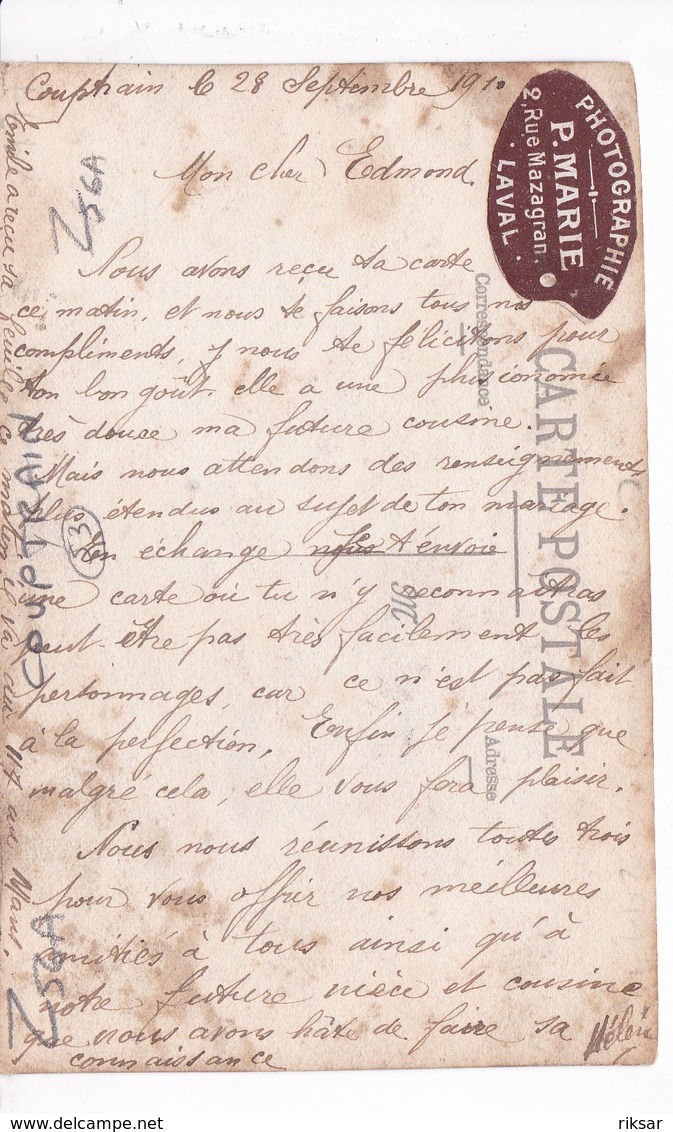 Couptrain le 28 Septembre 1910
PHOTOGRAPHIE
P. MARIE
2, Rue Mazagran
LAVAL.
Mon cher Edmond.
Nous avons reçu ta carte
ce matin, et nous te faisons tous nos
compliments, y nous te félicitons pour
ton bon goût. elle a une phisionomie
très douce ma future cousine.
Mais nous attendons des renseignements
plus étendus au sujet de ton mariage.
En échange t'envoie
une carte où tu n'y reconnaitras
peut-être pas très facilement les
personnages, car ce n'est pas fait
à la perfection. Enfin je pense que
malgré cela, elle vous fera plaisir.
Nous nous réunissons toutes trois
pour vous offrir nos meilleures
amitiés à tous ainsi qu'à
notre future nièce et cousine
que nous avons hâte de faire sa
connaissance
Hélène
Emile a reçu sa feuille ce matin il va au 117 au Mans.
CARTE POSTALE
Correspondance
Adresse
M
COUPTRAIN
53
Z56A
Z56A
delcampe.net
riksar